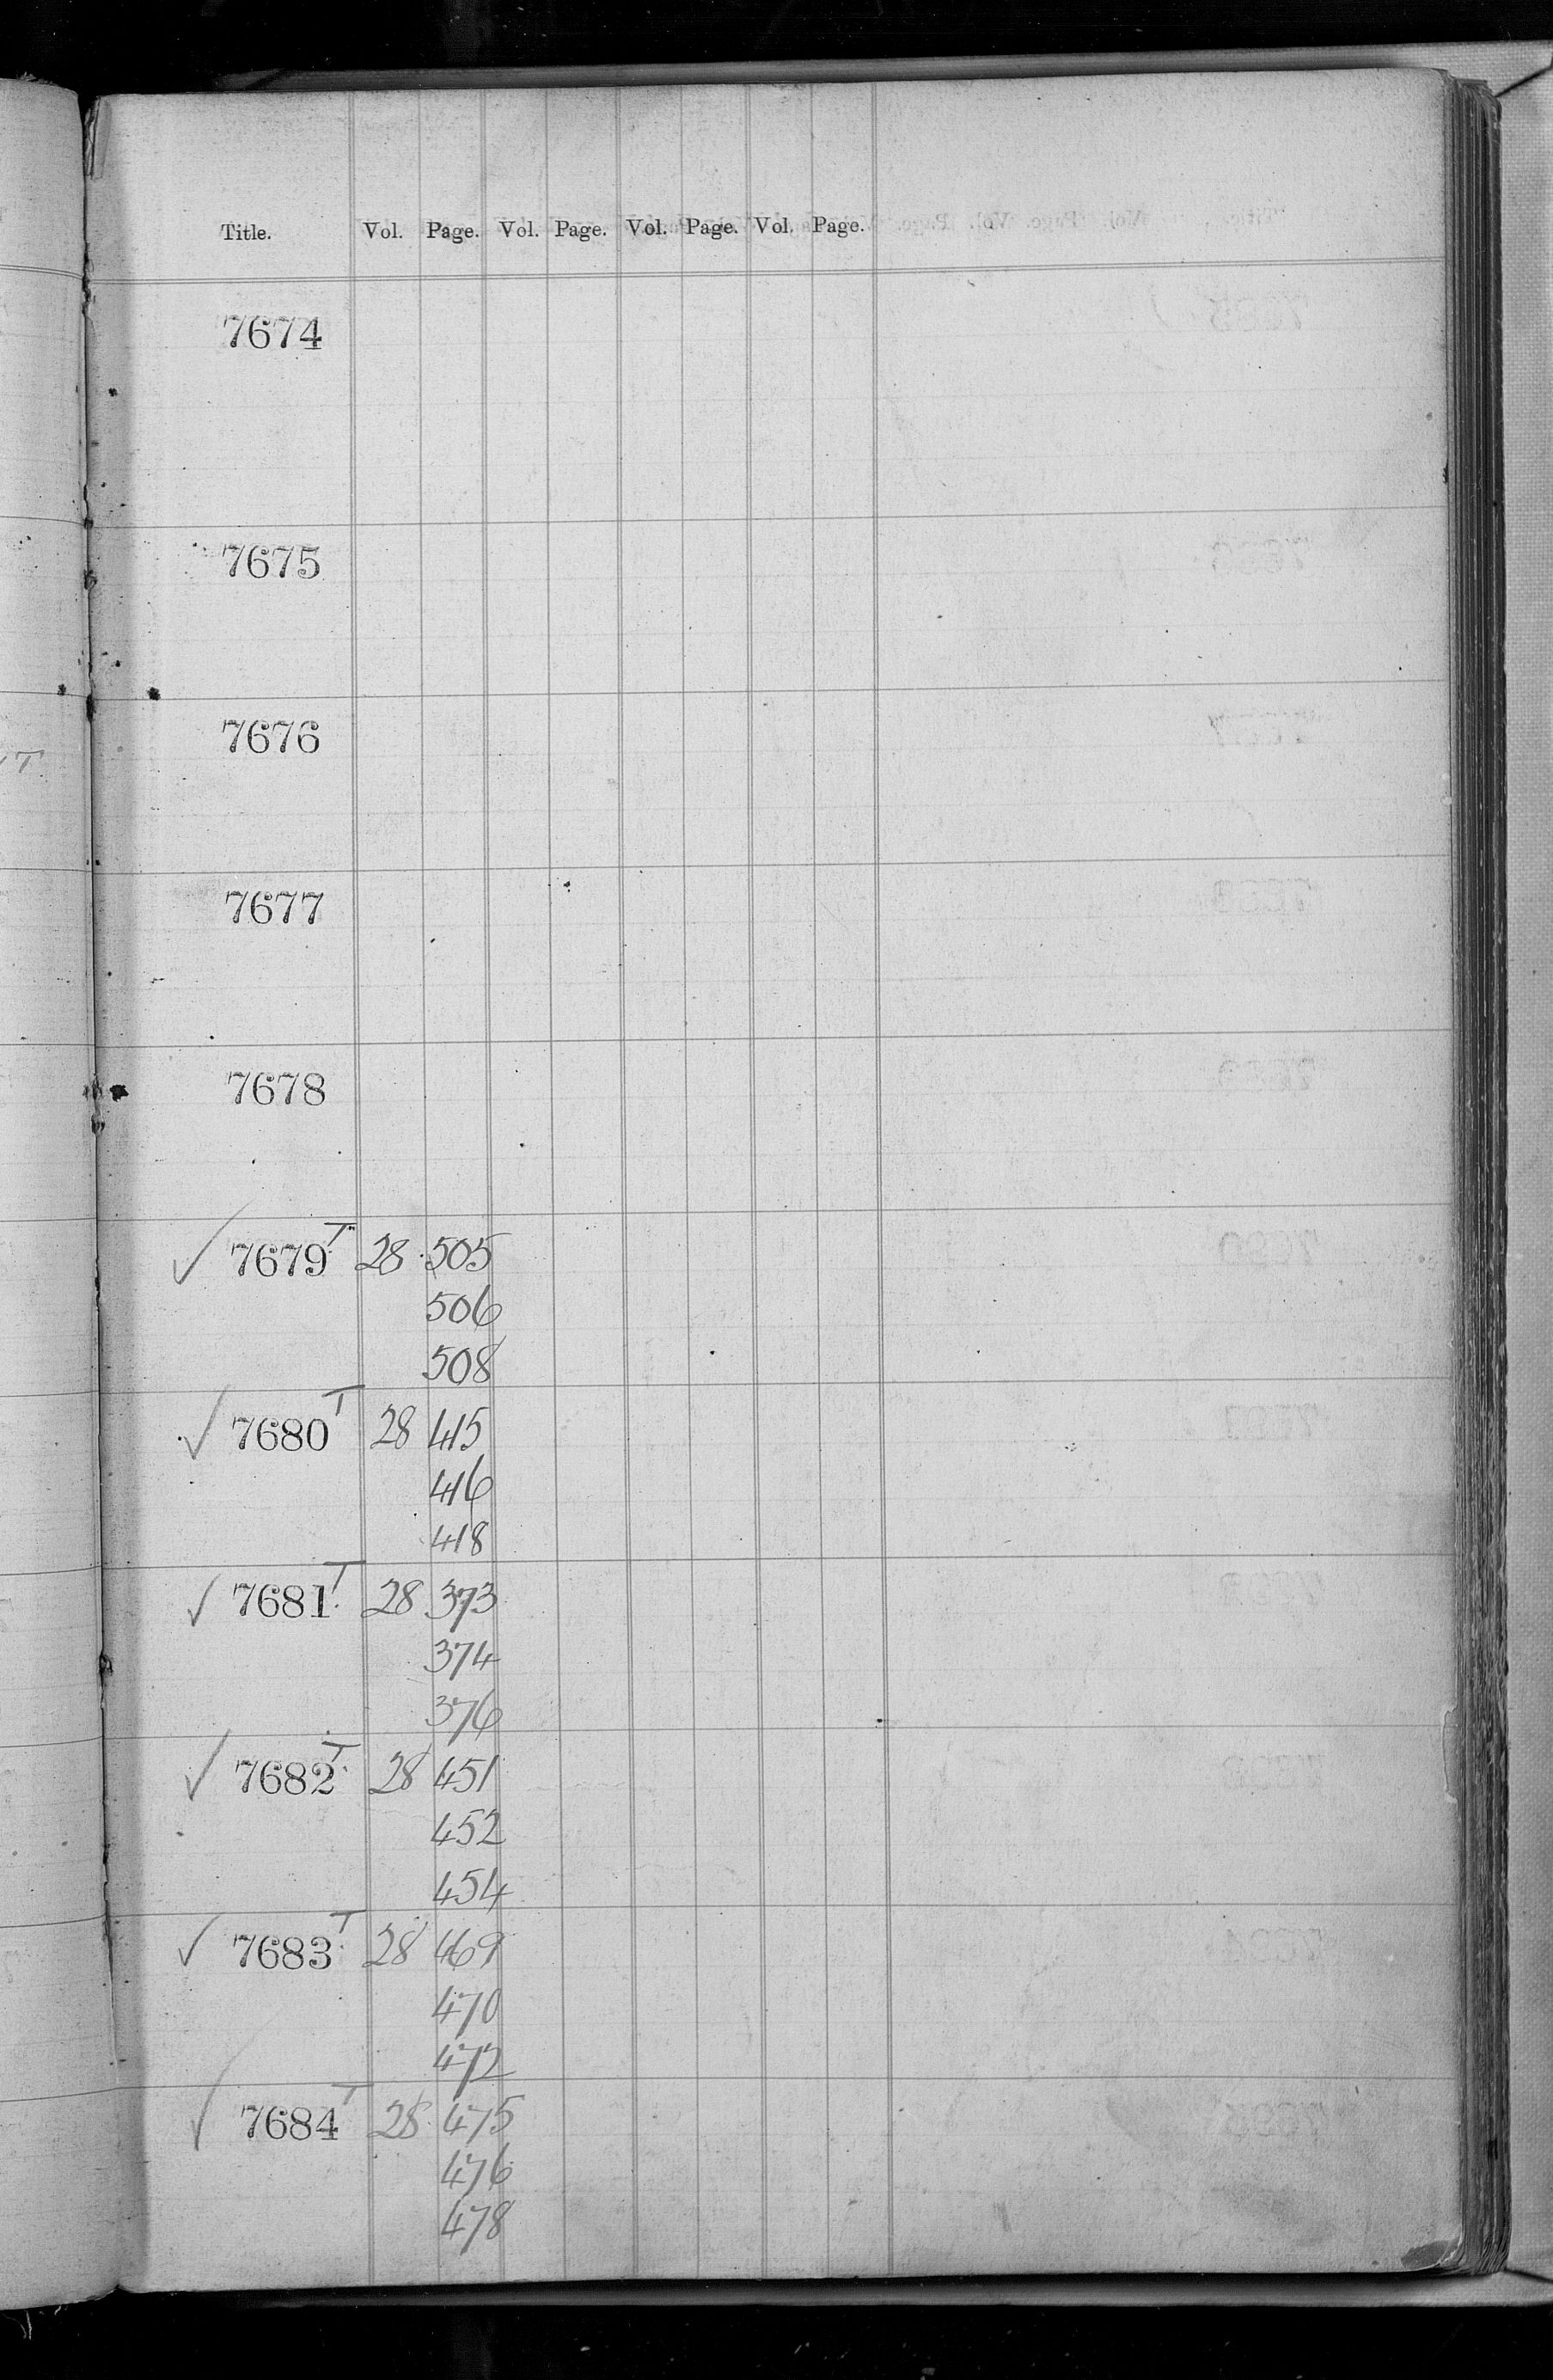 Title. Vol. Page. Vol. Page. Vol. Page. Vol. Page.
7674
7675
7676
7677
7678
✓ 7679 T 28 505
506
508
✓ 7680 T 28 415
416
418
✓ 7681 T 28 373
374
376
✓ 7682 T 28 451
452
454
✓ 7683 T 28 469
470
472
✓ 7684 T 28 475
476
478